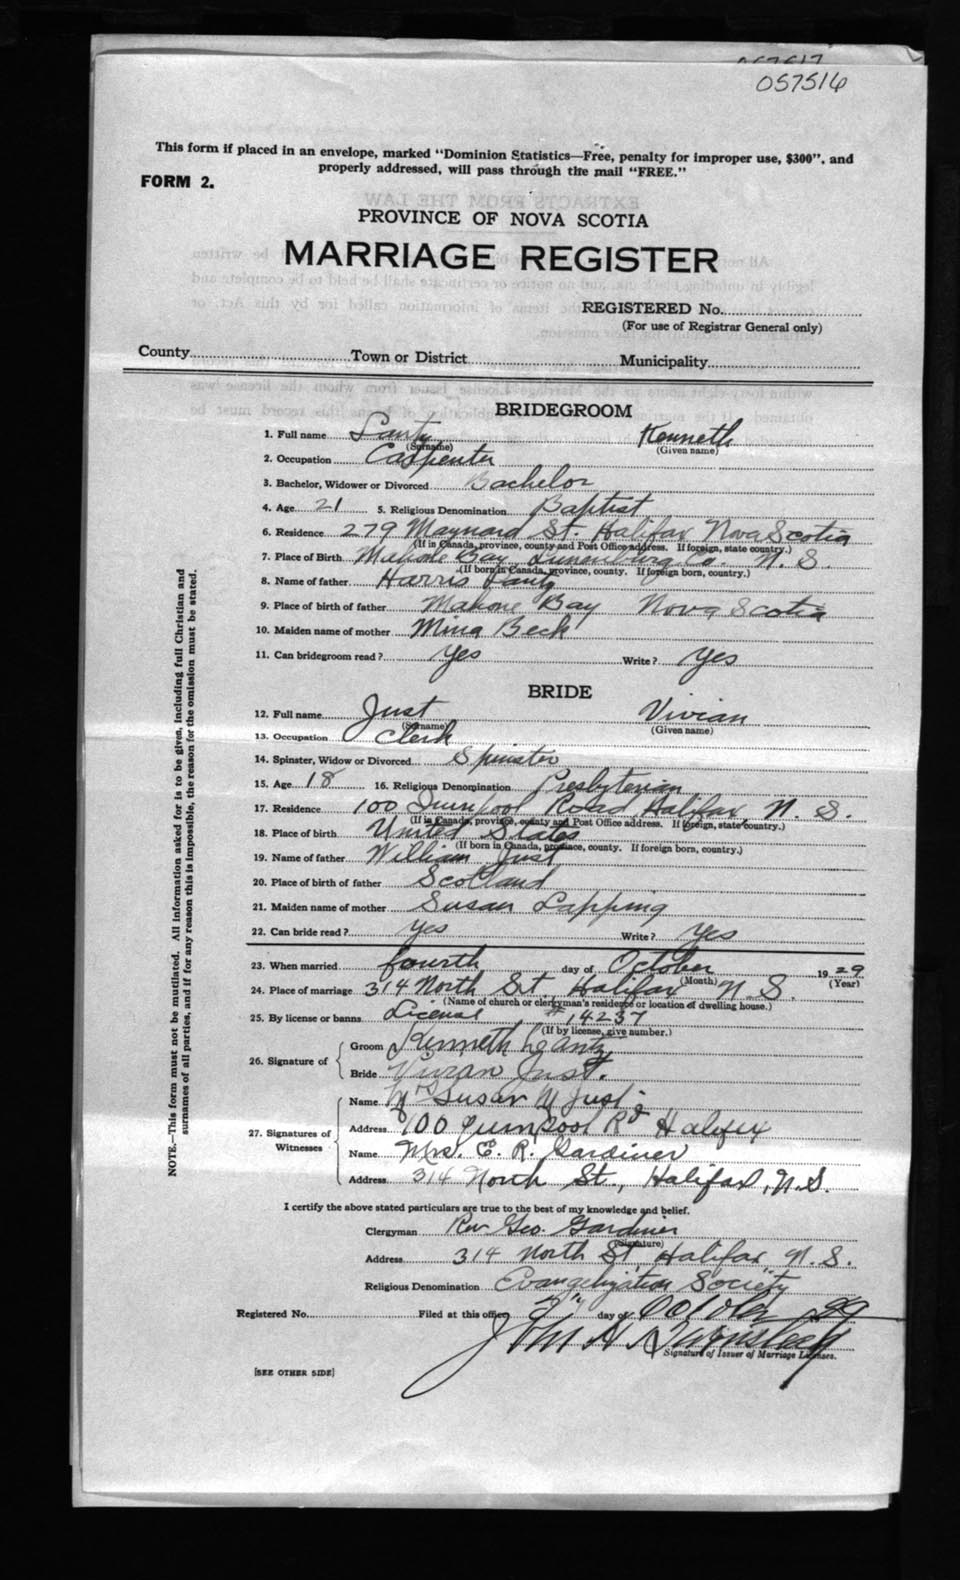 057517
057516
This form if placed in an envelope, marked "Dominion Statistics—Free, penalty for improper use, $300", and
properly addressed, will pass through the mail "FREE."
FORM 2.
PROVINCE OF NOVA SCOTIA
MARRIAGE REGISTER
REGISTERED No.
(For use of Registrar General only)
County Town or District Municipality
BRIDEGROOM
1. Full name Lantz Kenneth
(Surname) (Given name)
2. Occupation Carpenter
3. Bachelor, Widower or Divorced Bachelor
4. Age 21 5. Religious Denomination Baptist
6. Residence 279 Maynard St. Halifax Nova Scotia
(If in Canada, province, county and Post Office address. If foreign, state country.)
7. Place of Birth Mahone Bay Lunenburg Co. N. S.
(If born in Canada, province, county. If foreign born, country.)
8. Name of father Harris Lantz
9. Place of birth of father Mahone Bay Nova Scotia
10. Maiden name of mother Mina Beck
11. Can bridegroom read? yes Write? yes
BRIDE
12. Full name Just Vivian
(Surname) (Given name)
13. Occupation Clerk
14. Spinster, Widow or Divorced Spinster
15. Age 18 16. Religious Denomination Presbyterian
17. Residence 100 Quinpool Road Halifax, N. S.
(If in Canada, province, county and Post Office address. If foreign, state country.)
18. Place of birth United States
(If born in Canada, province, county. If foreign born, country.)
19. Name of father William Just
20. Place of birth of father Scotland
21. Maiden name of mother Susan Lapping
22. Can bride read? yes Write? yes
23. When married fourth day of October 1929
(Month) (Year)
24. Place of marriage 314 North St. Halifax N. S.
(Name of church or clergyman's residence or location of dwelling house.)
25. By license or banns License # 14237
(If by license, give number.)
26. Signature of Groom Kenneth Lantz
Bride Vivian Just.
27. Signatures of Witnesses
Name Mrs Susan M Just
Address 100 Quinpool Rd Halifax
Name Mrs. E. R. Gardiner
Address 314 North St., Halifax, N.S.
I certify the above stated particulars are true to the best of my knowledge and belief.
Clergyman Rev Geo. Gardiner
(Signature)
Address 314 North St. Halifax, N. S.
Religious Denomination Evangelization Society
Registered No. Filed at this office day of October 29
John H
Signature of Issuer of Marriage Licenses.
[SEE OTHER SIDE]
NOTE.—This form must not be mutilated. All information asked for is to be given, including full Christian and
surnames of all parties, and if for any reason this is impossible, the reason for the omission must be stated.